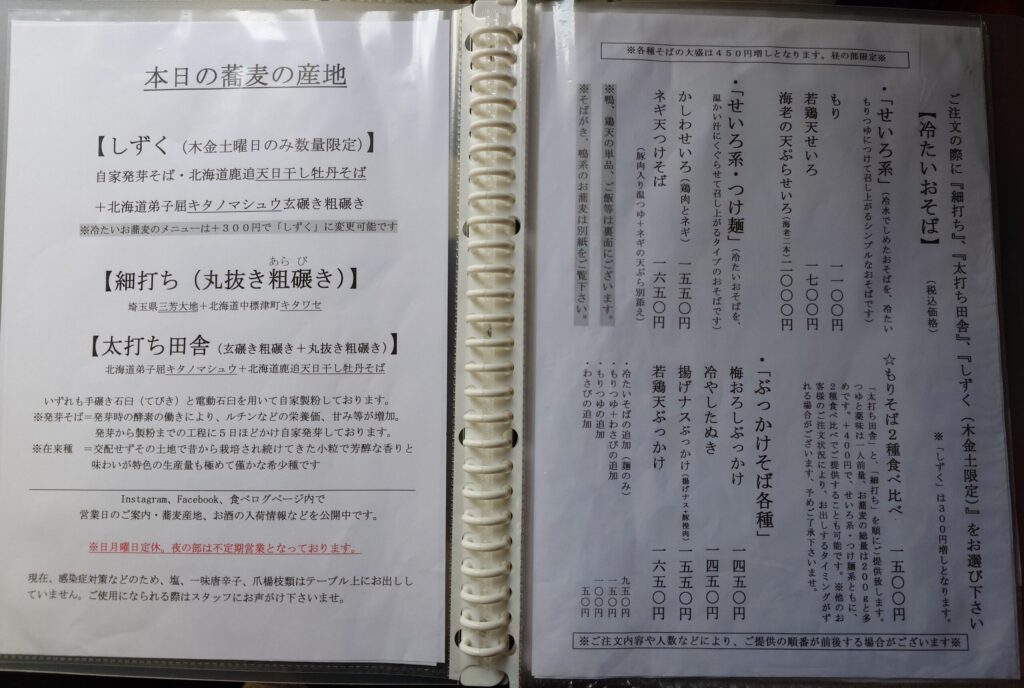 本日の蕎麦の産地
【しずく（木金土曜日のみ数量限定）】
自家発芽そば・北海道鹿追天日干し牡丹そば
＋北海道弟子屈キタノマシュウ玄碾き粗碾き
※冷たいお蕎麦のメニューは＋３００円で「しずく」に変更可能です
【細打ち（丸抜き粗碾き）】
あらび
埼玉県三芳大地＋北海道中標津町キタワセ
【太打ち田舎（玄碾き粗碾き＋丸抜き粗碾き）】
北海道弟子屈キタノマシュウ＋北海道鹿追天日干し牡丹そば
いずれも手碾き石臼（てびき）と電動石臼を用いて自家製粉しております。
※発芽そば＝発芽時の酵素の働きにより、ルチンなどの栄養価、甘み等が増加。
発芽から製粉までの工程に５日ほどかけ自家発芽しております。
※在来種　＝交配せずその土地で昔から栽培され続けてきた小粒で芳醇な香りと
味わいが特色の生産量も極めて僅かな希少種です
Instagram、Facebook、食べログページ内で
営業日のご案内・蕎麦産地、お酒の入荷情報などを公開中です。
※日月曜日定休。夜の部は不定期営業となっております。
現在、感染症対策などのため、塩、一味唐辛子、爪楊枝類はテーブル上にお出しし
ていません。ご使用になられる際はスタッフにお声がけ下さいませ。
※各種そばの大盛は４５０円増しとなります。昼の部限定※
ご注文の際に『細打ち』、『太打ち田舎』、『しずく（木金土限定）』をお選び下さい
※「しずく」は３００円増しとなります。
【冷たいおそば】（税込価格）
・「せいろ系」（冷水でしめたおそばを、冷たい
もりつゆにつけて召し上がるシンプルなおそばです）
もり　１１００円
若鶏天せいろ　１７００円
海老の天ぷらせいろ（海老二本）２１０００円
・「せいろ系・つけ麺」（冷たいおそばを、
温かい汁にくぐらせて召し上がるタイプのおそばです）
かしわせいろ（鶏肉とネギ）　１５５０円
ネギ天つけそば　１６５０円
（豚肉入り温つゆ＋ネギの天ぷら別添え）
※鴨、鶏天の単品、ご飯等は裏面にございます。
※そばがき、鴨系のお蕎麦は別紙をご覧下さい。
☆もりそば２種食べ比べ　１５００円
「太打ち田舎」と、「細打ち」を順にご提供致します。
つゆと薬味は一人前量、お蕎麦の総量は２００ｇと多
めです。＋４００円で、せいろ系・つけ麺系ともに、
２種食べ比べでご提供することも可能です。※他のお
客様のご注文状況により、お出しするタイミングがず
れる場合がございます、予めご了承下さいませ。
・「ぶっかけそば各種」
梅おろしぶっかけ　１４５０円
冷やしたぬき　１４５０円
揚げナスぶっかけ（揚げナス・豚挽肉）　１５５０円
若鶏天ぶっかけ　１６５０円
・冷たいそばの追加（麺のみ）　９５０円
・もりつゆ＋わさびの追加　１５０円
・もりつゆの追加　１００円
・わさびの追加　５０円
※ご注文内容や人数などにより、ご提供の順番が前後する場合がございます※